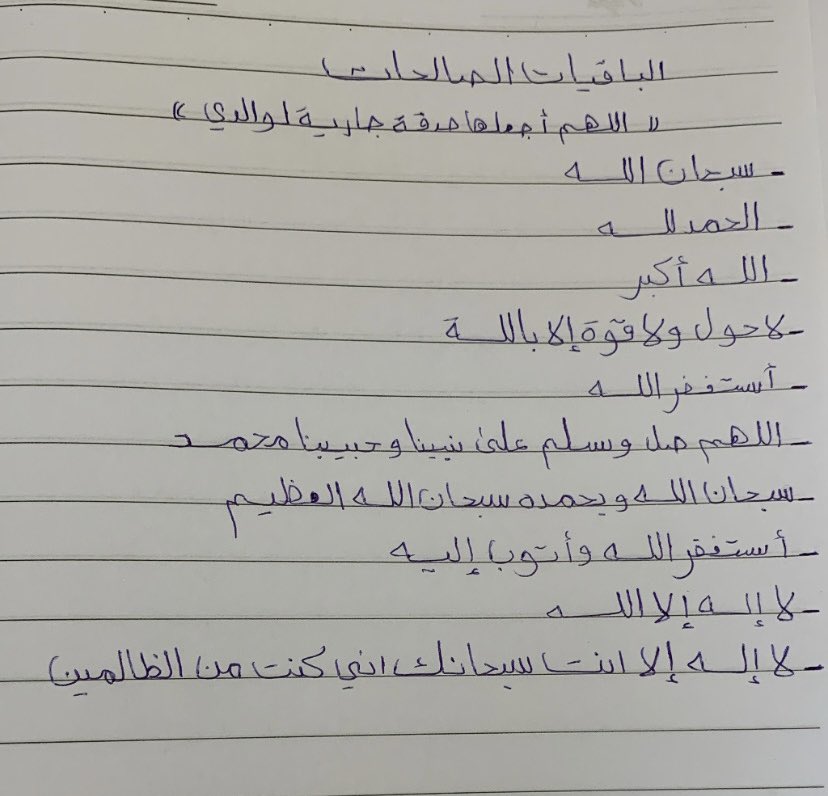 الباقيات الصالحات
" اللهم أجعلها صدقة جارية لوالدي "
- سبحان الله
- الحمد لله
- الله أكبر
- لا حول ولا قوة إلا باللة
- أستغفر الله
- اللهم صل وسلم على نبينا وحبيبنا محمد
- سبحان الله وبحمده سبحان الله العظيم
- أستغفر الله وأتوب إليه
- لا إله إلا الله
- لا إله إلا انت سبحانك اني كنت من الظالمين